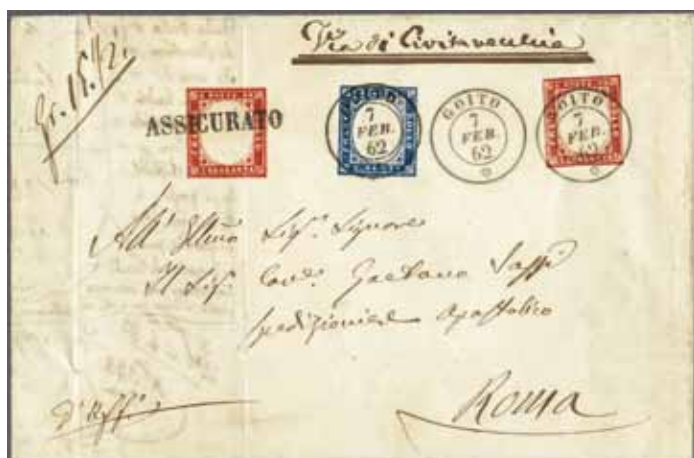 Via di Civitavecchia
gr. 15.½.
ASSICURATO
GOITO
7
FEB.
62
GOITO
7
FEB.
62
GOITO
7
FEB.
62
All' Illmo Sigr. Signore
Il Sigr. Cavr. Gaetano Sassi
Spedizioniere Apostolico
Roma